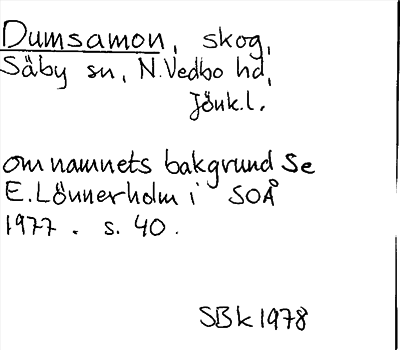 Dumsamon, skog,
Säby sn, N.Vedbo hd,
Jönk.l.
om namnets bakgrund se
E. Lönnerholm i SOÅ
1977. s. 40.
SBk 1978